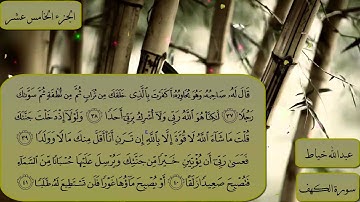 الجزء الخامس عشر
قَالَ لَهُۥ صَاحِبُهُۥ وَهُوَ يُحَاوِرُهُۥٓ أَكَفَرْتَ بِٱلَّذِى خَلَقَكَ مِن تُرَابٍ ثُمَّ مِن نُّطْفَةٍ ثُمَّ سَوَّىٰكَ
رَجُلًا ٣٧ لَّٰكِنَّا۠ هُوَ ٱللَّهُ رَبِّى وَلَآ أُشْرِكُ بِرَبِّىٓ أَحَدًا ٣٨ وَلَوْلَآ إِذْ دَخَلْتَ جَنَّتَكَ
قُلْتَ مَا شَآءَ ٱللَّهُ لَا قُوَّةَ إِلَّا بِٱللَّهِ إِن تَرَنِ أَنَا۠ أَقَلَّ مِنكَ مَالًا وَوَلَدًا ٣٩
فَعَسَىٰ رَبِّىٓ أَن يُؤْتِيَنِ خَيْرًا مِّن جَنَّتِكَ وَيُرْسِلَ عَلَيْهَا حُسْبَانًا مِّنَ ٱلسَّمَآءِ
فَتُصْبِحَ صَعِيدًا زَلَقًا ٤٠ أَوْ يُصْبِحَ مَآؤُهَا غَوْرًا فَلَن تَسْتَطِيعَ لَهُۥ طَلَبًا ٤١
عبدالله خياط
سورة الكهف